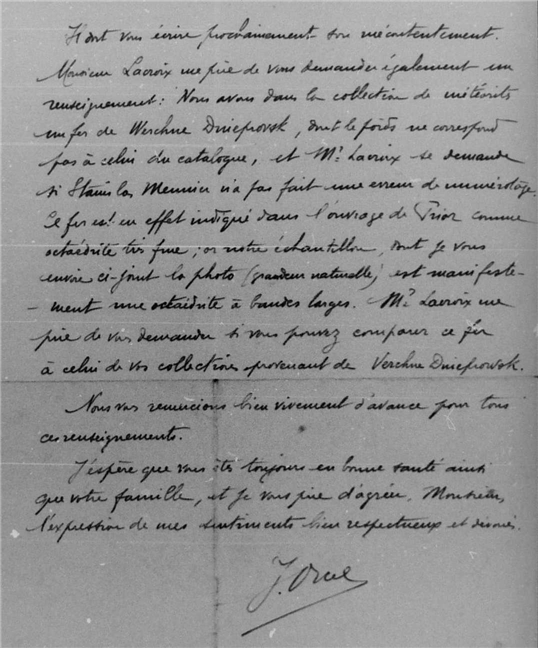 Il doit vous écrire prochainement son mécontentement.
Monsieur Lacroix me prie de vous demander également un
renseignement : Nous avons dans la collection de météorites
un fer de Werchne Dnieprovsk, dont le poids ne correspond
pas à celui du catalogue, et Mr Lacroix se demande
si Stanislas Meunier n'a pas fait une erreur de numérotage.
Ce fer est en effet indiqué dans l'ouvrage de Prior comme
octaédrite très fine ; or notre échantillon, dont je vous
envoie ci-joint la photo (grandeur naturelle) est manifeste-
-ment une octaédrite à bandes larges. Mr Lacroix me
prie de vous demander si vous pouvez comparer ce fer
à celui de vos collections provenant de Verchne Dnieprowsk.
Nous vous remercions bien vivement d'avance pour tous
ces renseignements.
J'espère que vous êtes toujours en bonne santé ainsi
que votre famille, et je vous prie d'agréer, Monsieur,
l'expression de mes sentiments bien respectueux et dévoués.
J. Orcel